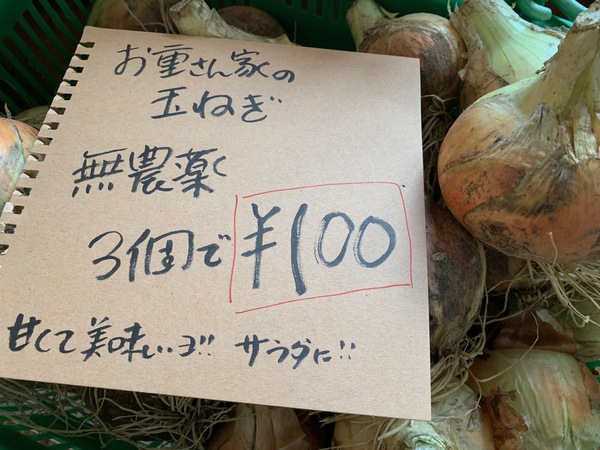 お重さん家の
玉ねぎ
無農薬
3個で ¥100
甘くて美味しいヨ!! サラダに!!